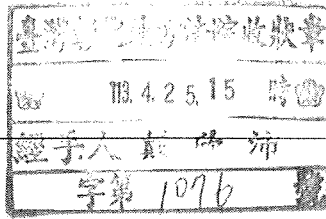 臺灣 地方法院收狀章
113. 4. 25. 15 時
經手人 沛
字第 1076 號